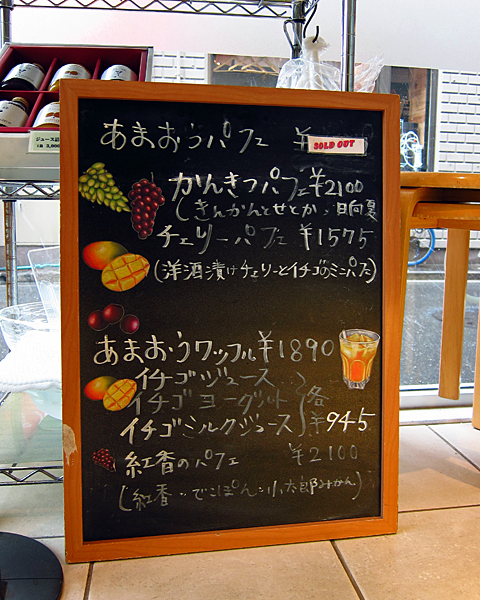 あまおうパフェ ¥ SOLD OUT
かんきつパフェ ¥2100
(きんかんとせとか、日向夏
チェリーパフェ ¥1575
(洋酒漬けチェリーとイチゴのミニパフェ)
あまおうワッフル ¥1890
イチゴジュース
イチゴヨーグルト 各
イチゴミルクジュース ¥945
紅香のパフェ ¥2100
(紅香・でこぽん・小太郎みかん)